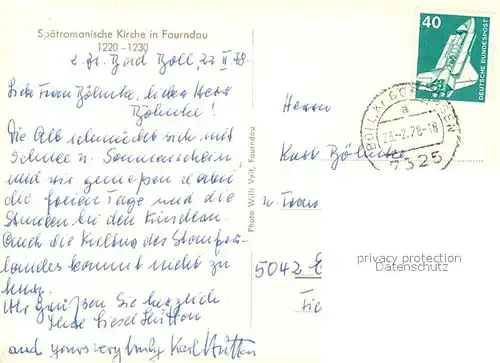 Spätromanische Kirche in Faurndau
1220-1230
z. Zt. Bad Boll 22 II 78.
Liebe Frau Böhncke, lieber Herr
Böhncke!
Die Alb schmückt sich mit
Schnee u. Sonnenschein,
und wir genießen dabei
die freien Tage und die
Stunden bei den Kindern.
Auch die Kultur des Staufer-
landes kommt nicht zu
kurz.
Wir grüßen Sie herzlich
Ihre Liesel Hütten
and yours very truly Karl Hütten
Photo Willi Veit, Faurndau
40
DEUTSCHE BUNDESPOST
a
23.-2.78-18
7325
Herrn
Kurt Böhncke
u. Frau
5042
privacy protection
Datenschutz